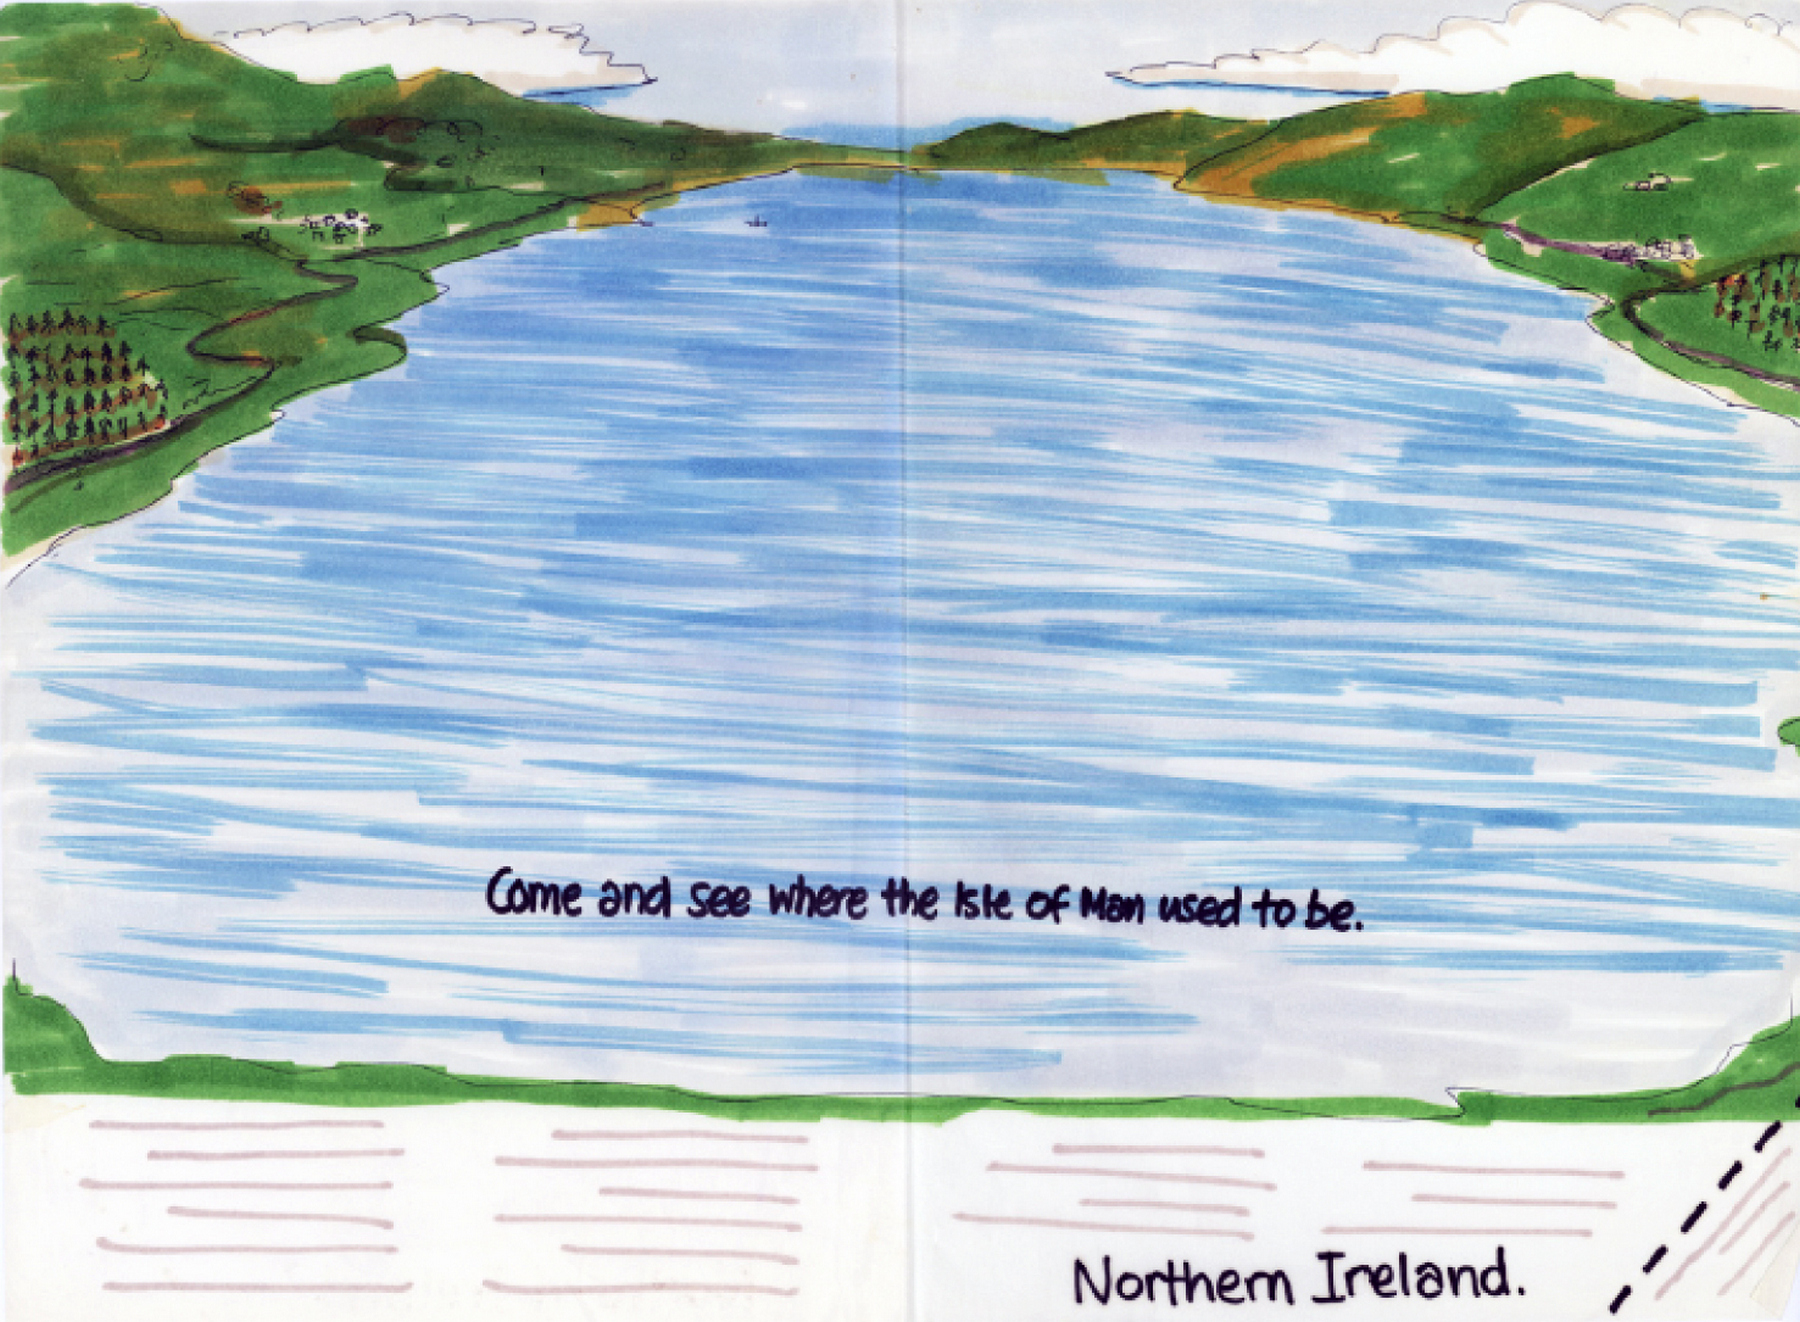 Come and see where the Isle of Man used to be.
Northern Ireland.